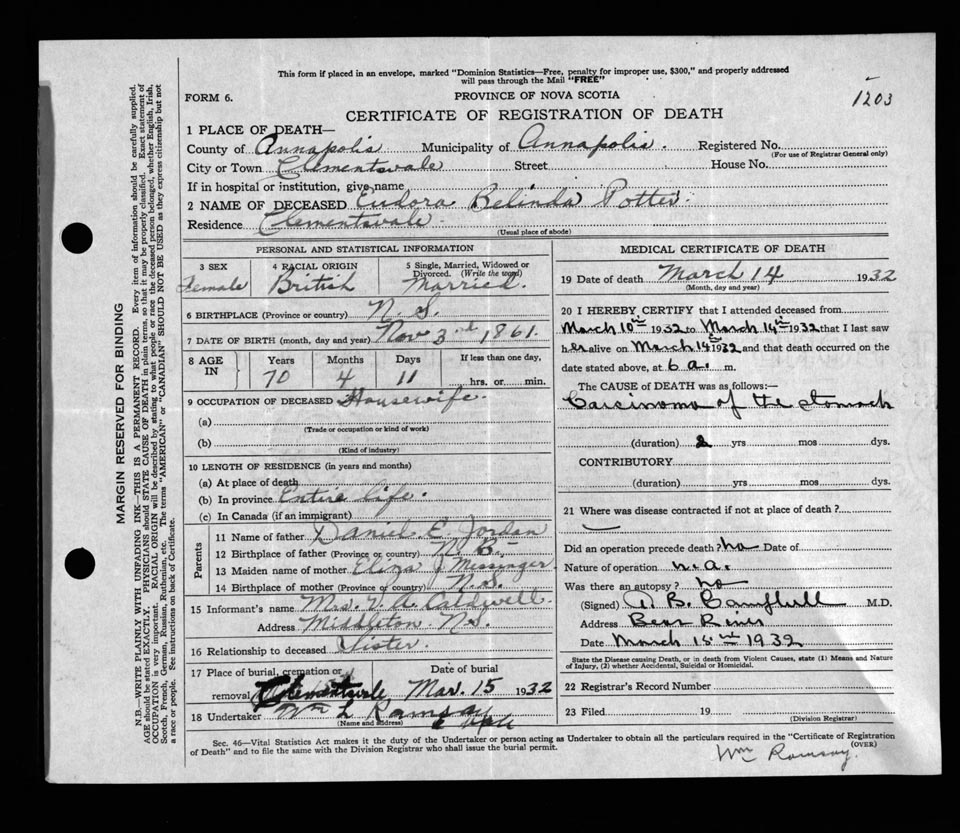 This form if placed in an envelope, marked "Dominion Statistics—Free, penalty for improper use, $300," and properly addressed
will pass through the Mail "FREE"
1203
FORM 6.
PROVINCE OF NOVA SCOTIA
CERTIFICATE OF REGISTRATION OF DEATH
1 PLACE OF DEATH—
County of Annapolis Municipality of Annapolis. Registered No.
(For use of Registrar General only)
City or Town Clementsvale Street House No.
If in hospital or institution, give name
2 NAME OF DECEASED Eudora Belinda Potter.
Residence Clementsvale.
(Usual place of abode)
PERSONAL AND STATISTICAL INFORMATION
3 SEX 4 RACIAL ORIGIN 5 Single, Married, Widowed or
Divorced. (Write the word)
Female British Married.
6 BIRTHPLACE (Province or country) N. S.
7 DATE OF BIRTH (month, day and year) Nov 3rd 1861.
8 AGE IN Years Months Days If less than one day,
70 4 11 hrs. or min.
9 OCCUPATION OF DECEASED Housewife.
(a)
(Trade or occupation or kind of work)
(b)
(Kind of industry)
10 LENGTH OF RESIDENCE (in years and months)
(a) At place of death
(b) In province Entire life.
(c) In Canada (if an immigrant)
Parents
11 Name of father Daniel E. Jordan
12 Birthplace of father (Province or country) N. B.
13 Maiden name of mother Eliza Messenger
14 Birthplace of mother (Province or country) N.S.
15 Informant's name Mrs. V. A. Caldwell.
Address Middleton N.S.
16 Relationship to deceased Sister.
17 Place of burial, cremation or Date of burial
removal Clementsvale Mar. 15 1932
18 Undertaker Wm L Ramsay
(Name and address)
MEDICAL CERTIFICATE OF DEATH
19 Date of death March 14 1932
(Month, day and year)
20 I HEREBY CERTIFY that I attended deceased from
March 10th 1932 to March 14th 1932 that I last saw
her alive on March 14 1932 and that death occurred on the
date stated above, at 6 a. m.
The CAUSE OF DEATH was as follows:—
Carcinoma of the stomach
(duration) 2 yrs mos dys.
CONTRIBUTORY
(duration) yrs. mos. dys.
21 Where was disease contracted if not at place of death?
Did an operation precede death? no Date of
Nature of operation n.a.
Was there an autopsy? no
(Signed) A. B. Campbell M.D.
Address Bear River
Date March 15 1932
State the Disease causing Death, or in death from Violent Causes, state (1) Means and Nature
of Injury, (2) whether Accidental, Suicidal or Homicidal.
22 Registrar's Record Number
23 Filed 19
(Division Registrar)
Sec. 46—Vital Statistics Act makes it the duty of the Undertaker or person acting as Undertaker to obtain all the particulars required in the "Certificate of Registration
of Death" and to file the same with the Division Registrar who shall issue the burial permit.
(OVER)
Wm Ramsay.
MARGIN RESERVED FOR BINDING
N.B.—WRITE PLAINLY WITH UNFADING INK—THIS IS A PERMANENT RECORD. Every item of information should be carefully supplied.
AGE should be stated EXACTLY. PHYSICIANS should STATE CAUSE OF DEATH in plain terms, so that it may be properly classified. Exact statement of
OCCUPATION is very important. RACIAL ORIGIN will be described by stating to what people or race the deceased person belonged, whether English, Irish,
Scotch, French, German, Russian, Ruthenian, etc. The terms "AMERICAN" or "CANADIAN" SHOULD NOT BE USED as they express citizenship but not
a race or people. See instructions on back of Certificate.